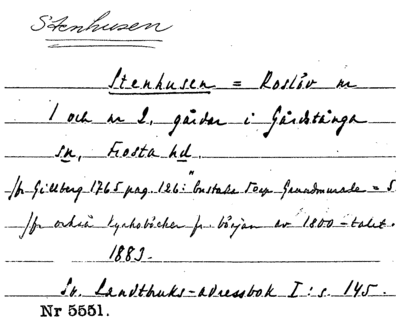 Stenhusen
Stenhusen = Roslöv nr
1 och nr 2, gårdar i Gårdstånga
sn, Frosta hd.
jfr Gillberg 1765 pag. 126: "bestale Grundmurade = S
jfr också kyrkoböcker fr. början av 1800-talet.
1883.
Sv. Landtbruks-adressbok I: s. 145.
Nr 5551.